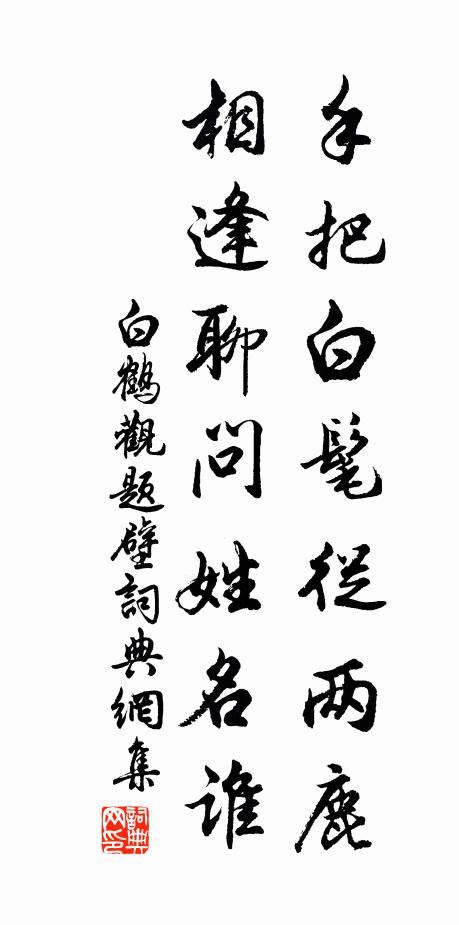 手把白髦從两鹿
相逢聊問姓名誰
白鶴觀題壁詞典網集
詞典网印